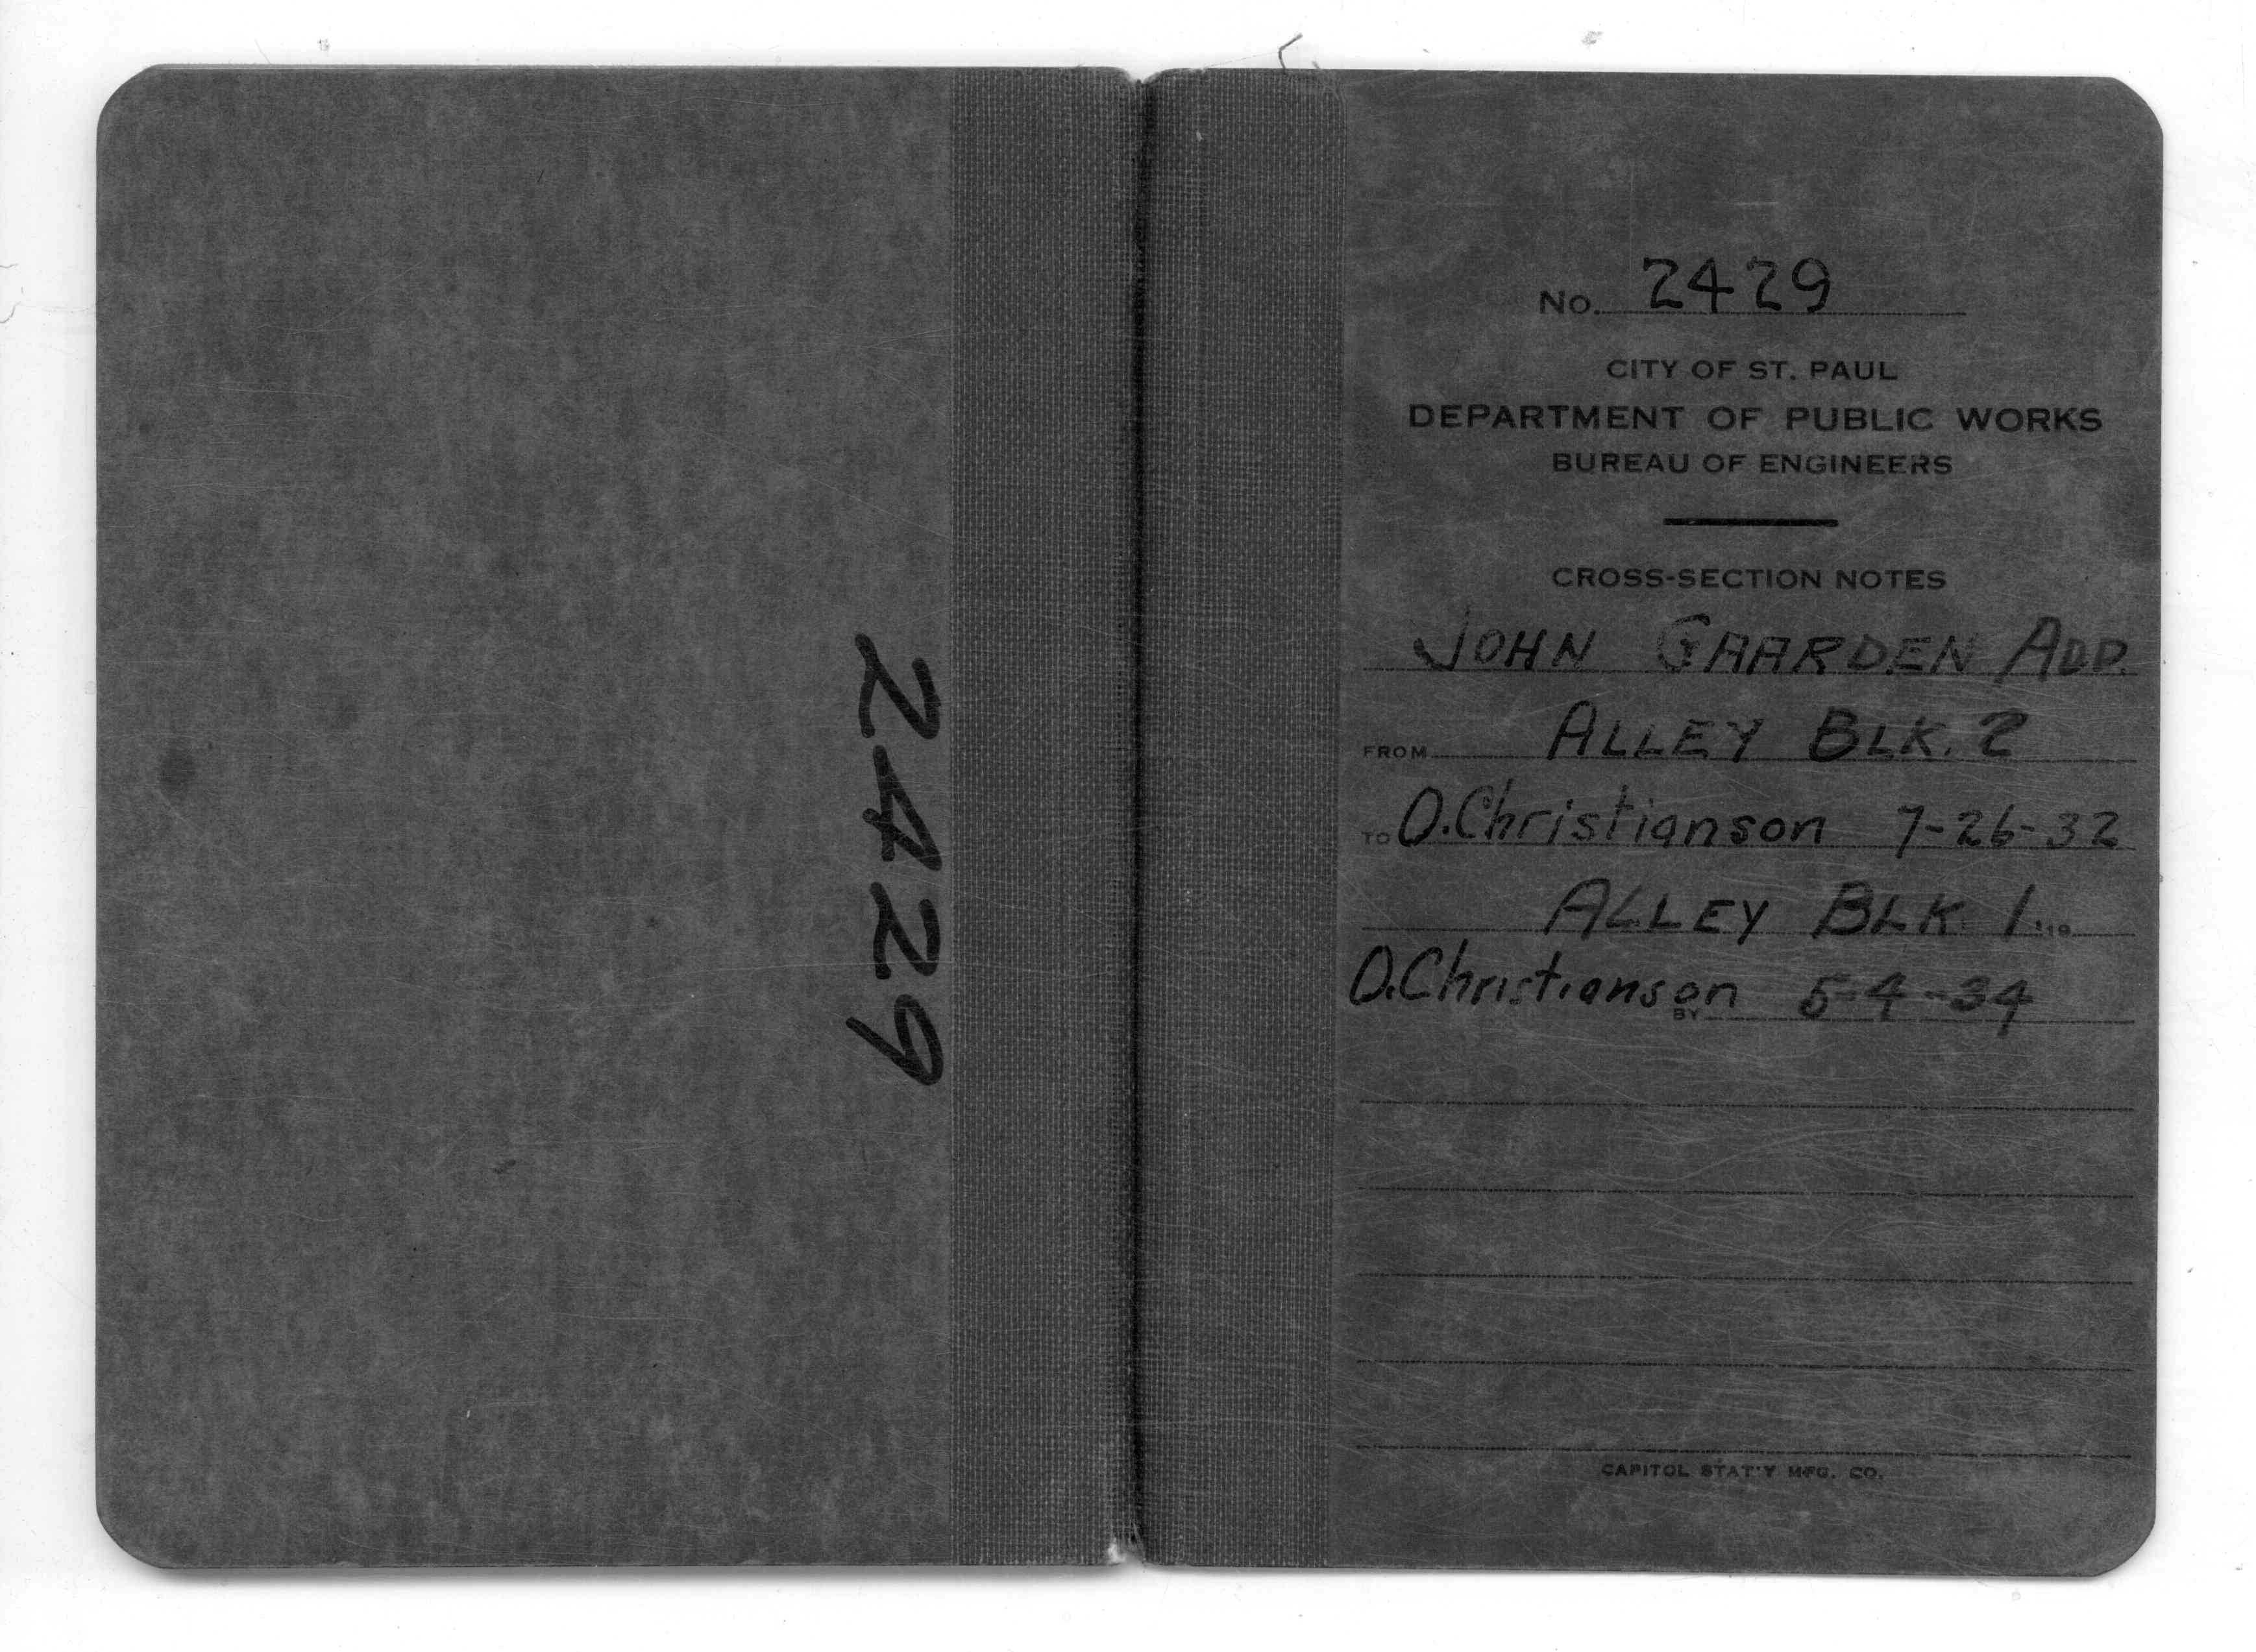 2429
No. 2429
CITY OF ST. PAUL
DEPARTMENT OF PUBLIC WORKS
BUREAU OF ENGINEERS
CROSS-SECTION NOTES
JOHN GAARDEN ADD.
FROM ALLEY BLK. 2
TO O.Christianson 7-26-32
ALLEY BLK 1
O.Christianson BY 5-4-34
CAPITOL STAT'Y MFG. CO.